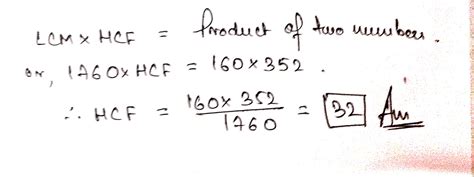 LCM × HCF = Product of two numbers.
or, 1760 × HCF = 160 × 352.
∴ HCF = 160 × 352 / 1760 = 32 Ans